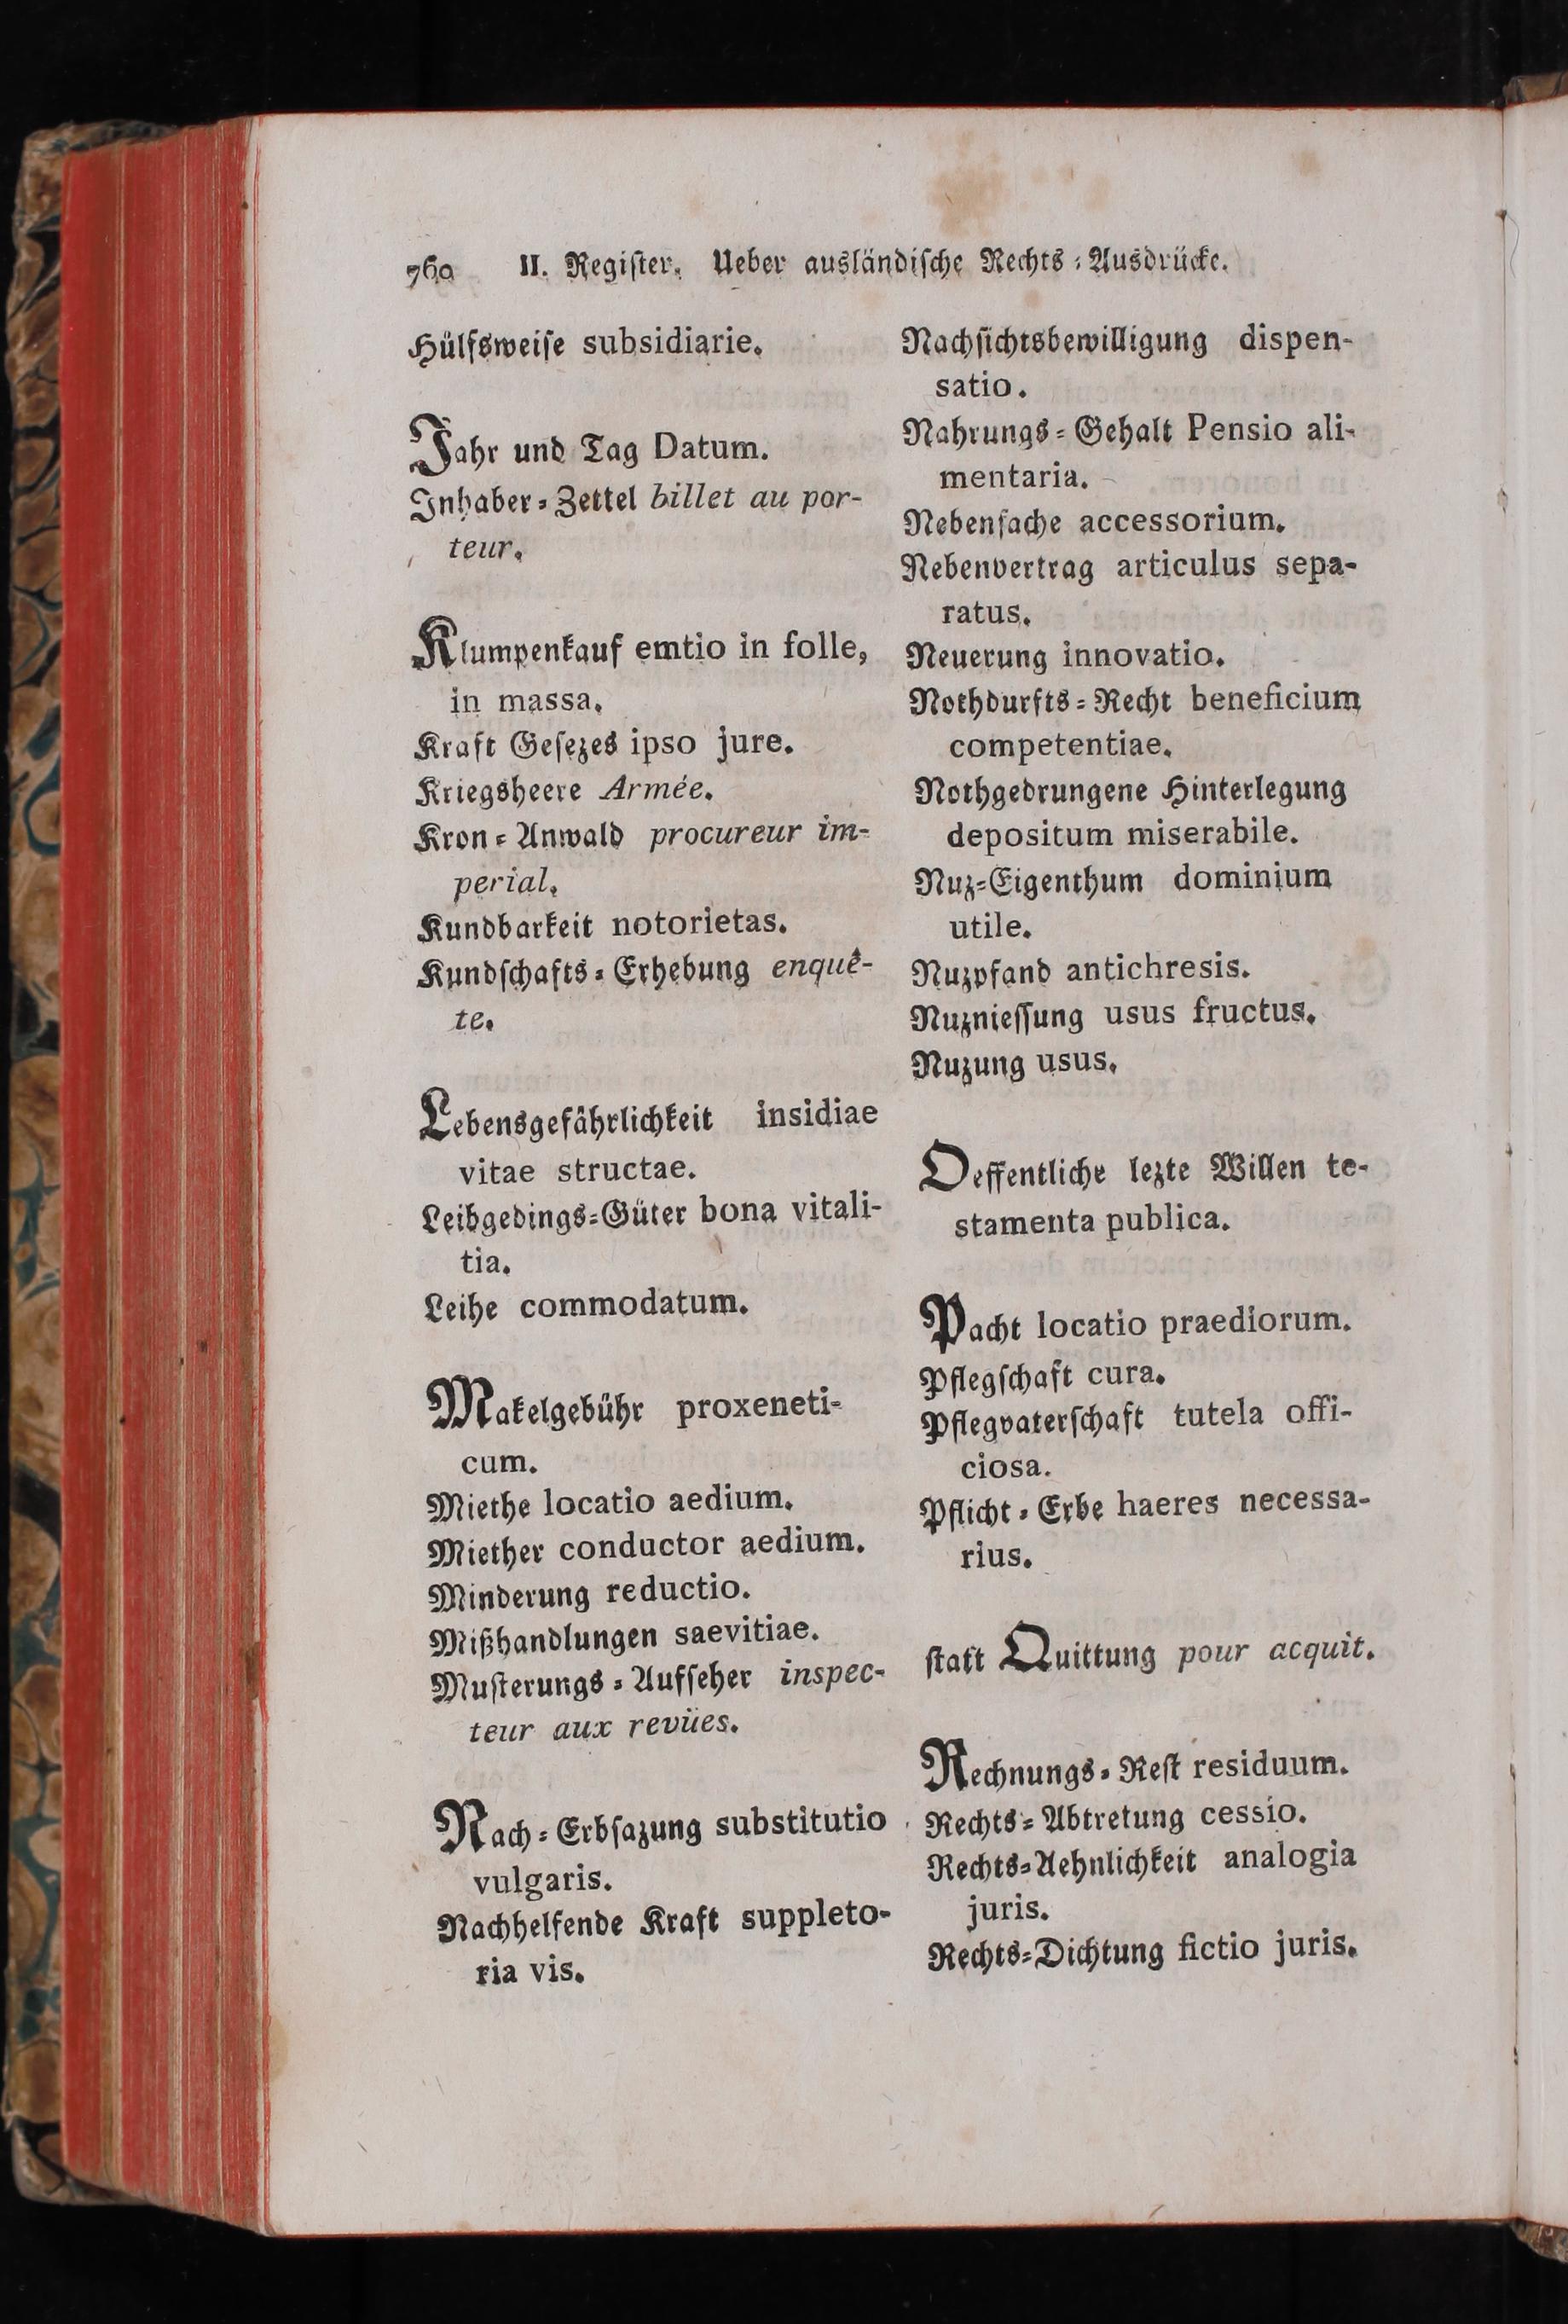 760 II. Regiſter. Ueber ausländiſche Rechts-Ausdrücke.
Hülfsweiſe subsidiarie.
Jahr und Tag Datum.
Inhaber-Zettel billet au por-
teur.
Klumpenkauf emtio in folle,
in massa.
Kraft Geſezes ipso jure.
Kriegsheere Armée.
Kron-Anwald procureur im-
perial.
Kundbarkeit notorietas.
Kundſchafts-Erhebung enquê-
te.
Lebensgefährlichkeit insidiae
vitae structae.
Leibgedings-Güter bona vitali-
tia.
Leihe commodatum.
Makelgebühr proxeneti-
cum.
Miethe locatio aedium.
Miether conductor aedium.
Minderung reductio.
Mißhandlungen saevitiae.
Muſterungs-Aufſeher inspec-
teur aux revües.
Nach-Erbſazung substitutio
vulgaris.
Nachhelfende Kraft suppleto-
ria vis.
Nachſichtsbewilligung dispen-
satio.
Nahrungs-Gehalt Pensio ali-
mentaria.
Nebenſache accessorium.
Nebenvertrag articulus sepa-
ratus.
Neuerung innovatio.
Nothdurfts-Recht beneficium
competentiae.
Nothgedrungene Hinterlegung
depositum miserabile.
Nuz-Eigenthum dominium
utile.
Nuzpfand antichresis.
Nuznieſſung usus fructus.
Nuzung usus.
Oeffentliche lezte Willen te-
stamenta publica.
Pacht locatio praediorum.
Pflegſchaft cura.
Pflegvaterſchaft tutela offi-
ciosa.
Pflicht-Erbe haeres necessa-
rius.
ſtatt Quittung pour acquit.
Rechnungs-Reſt residuum.
Rechts-Abtretung cessio.
Rechts-Aehnlichkeit analogia
juris.
Rechts-Dichtung fictio juris.